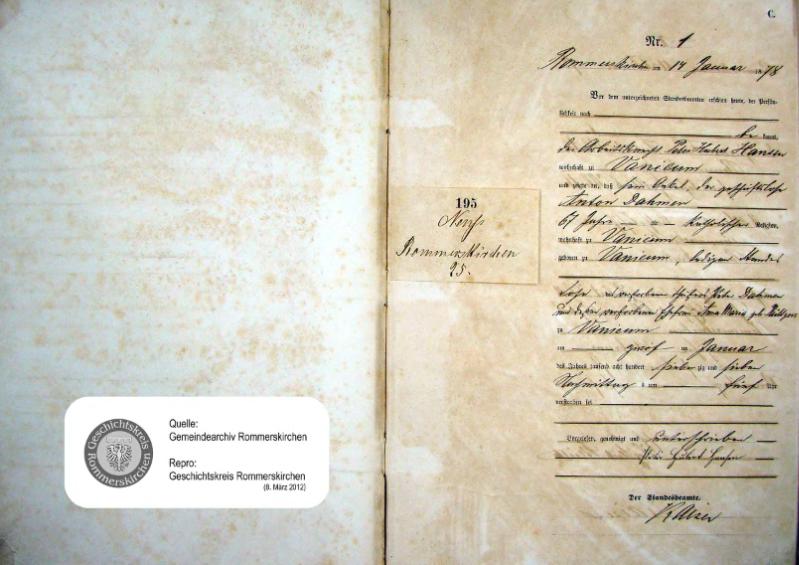 C.
Nr. 1
Rommerskirchen 14 Januar 1878
Vor dem unterzeichneten Standesbeamten erschien heute, der Persön-
lichkeit nach
be kannt,
der Peter Hubert Hansen
wohnhaft zu Vanicum
und zeigte an, daß sein Onkel, der geschäftslose
Anton Dahmen
67 Jahre katholischer Religion,
wohnhaft zu Vanicum
geboren zu Vanicum, ledigen Standes
Sohn des verstorbenen Peter Dahmen
und dessen verstorbenen Ehefrau Anna Maria geb.
zu Vanicum
am zwölf ten Januar
des Jahres tausend acht hundert siebenzig und
Nachmittag s um fünf Uhr
verstorben sei
Vorgelesen, genehmigt und unterschrieben
Peter Hubert Hansen
Der Standesbeamte.
195
Neuß
Rommerskirchen
Geschichtskreis
Rommerskirchen
Quelle:
Gemeindearchiv Rommerskirchen
Repro:
Geschichtskreis Rommerskirchen
(8. März 2012)